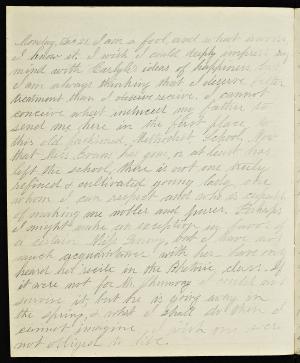 Monday, Dec 21. I am a fool, and what is worse
I know it. I wish I could deeply impress my
mind with Carlyle's ideas of happiness, but
I am always thinking that I deserve better
treatment than I receive. I cannot
conceive what induced my father to
send me here in the first place
this old fashioned, Methodist School. Now
that Miss Evans has gone, or at least has
left the school, there is not one really
refined & cultivated young lady one
whom I can respect and who is capable
of making me nobler and purer. Perhaps
I might make an exception in favor of
a certain Miss, but I have not
much acquaintance with her have only
heard her recite in the Rhetoric class. If
it were not for Mr. I could not
survive it, but he is going away in
the spring, & what I shall do then I
cannot imagine. I wish one were
not obliged to live.